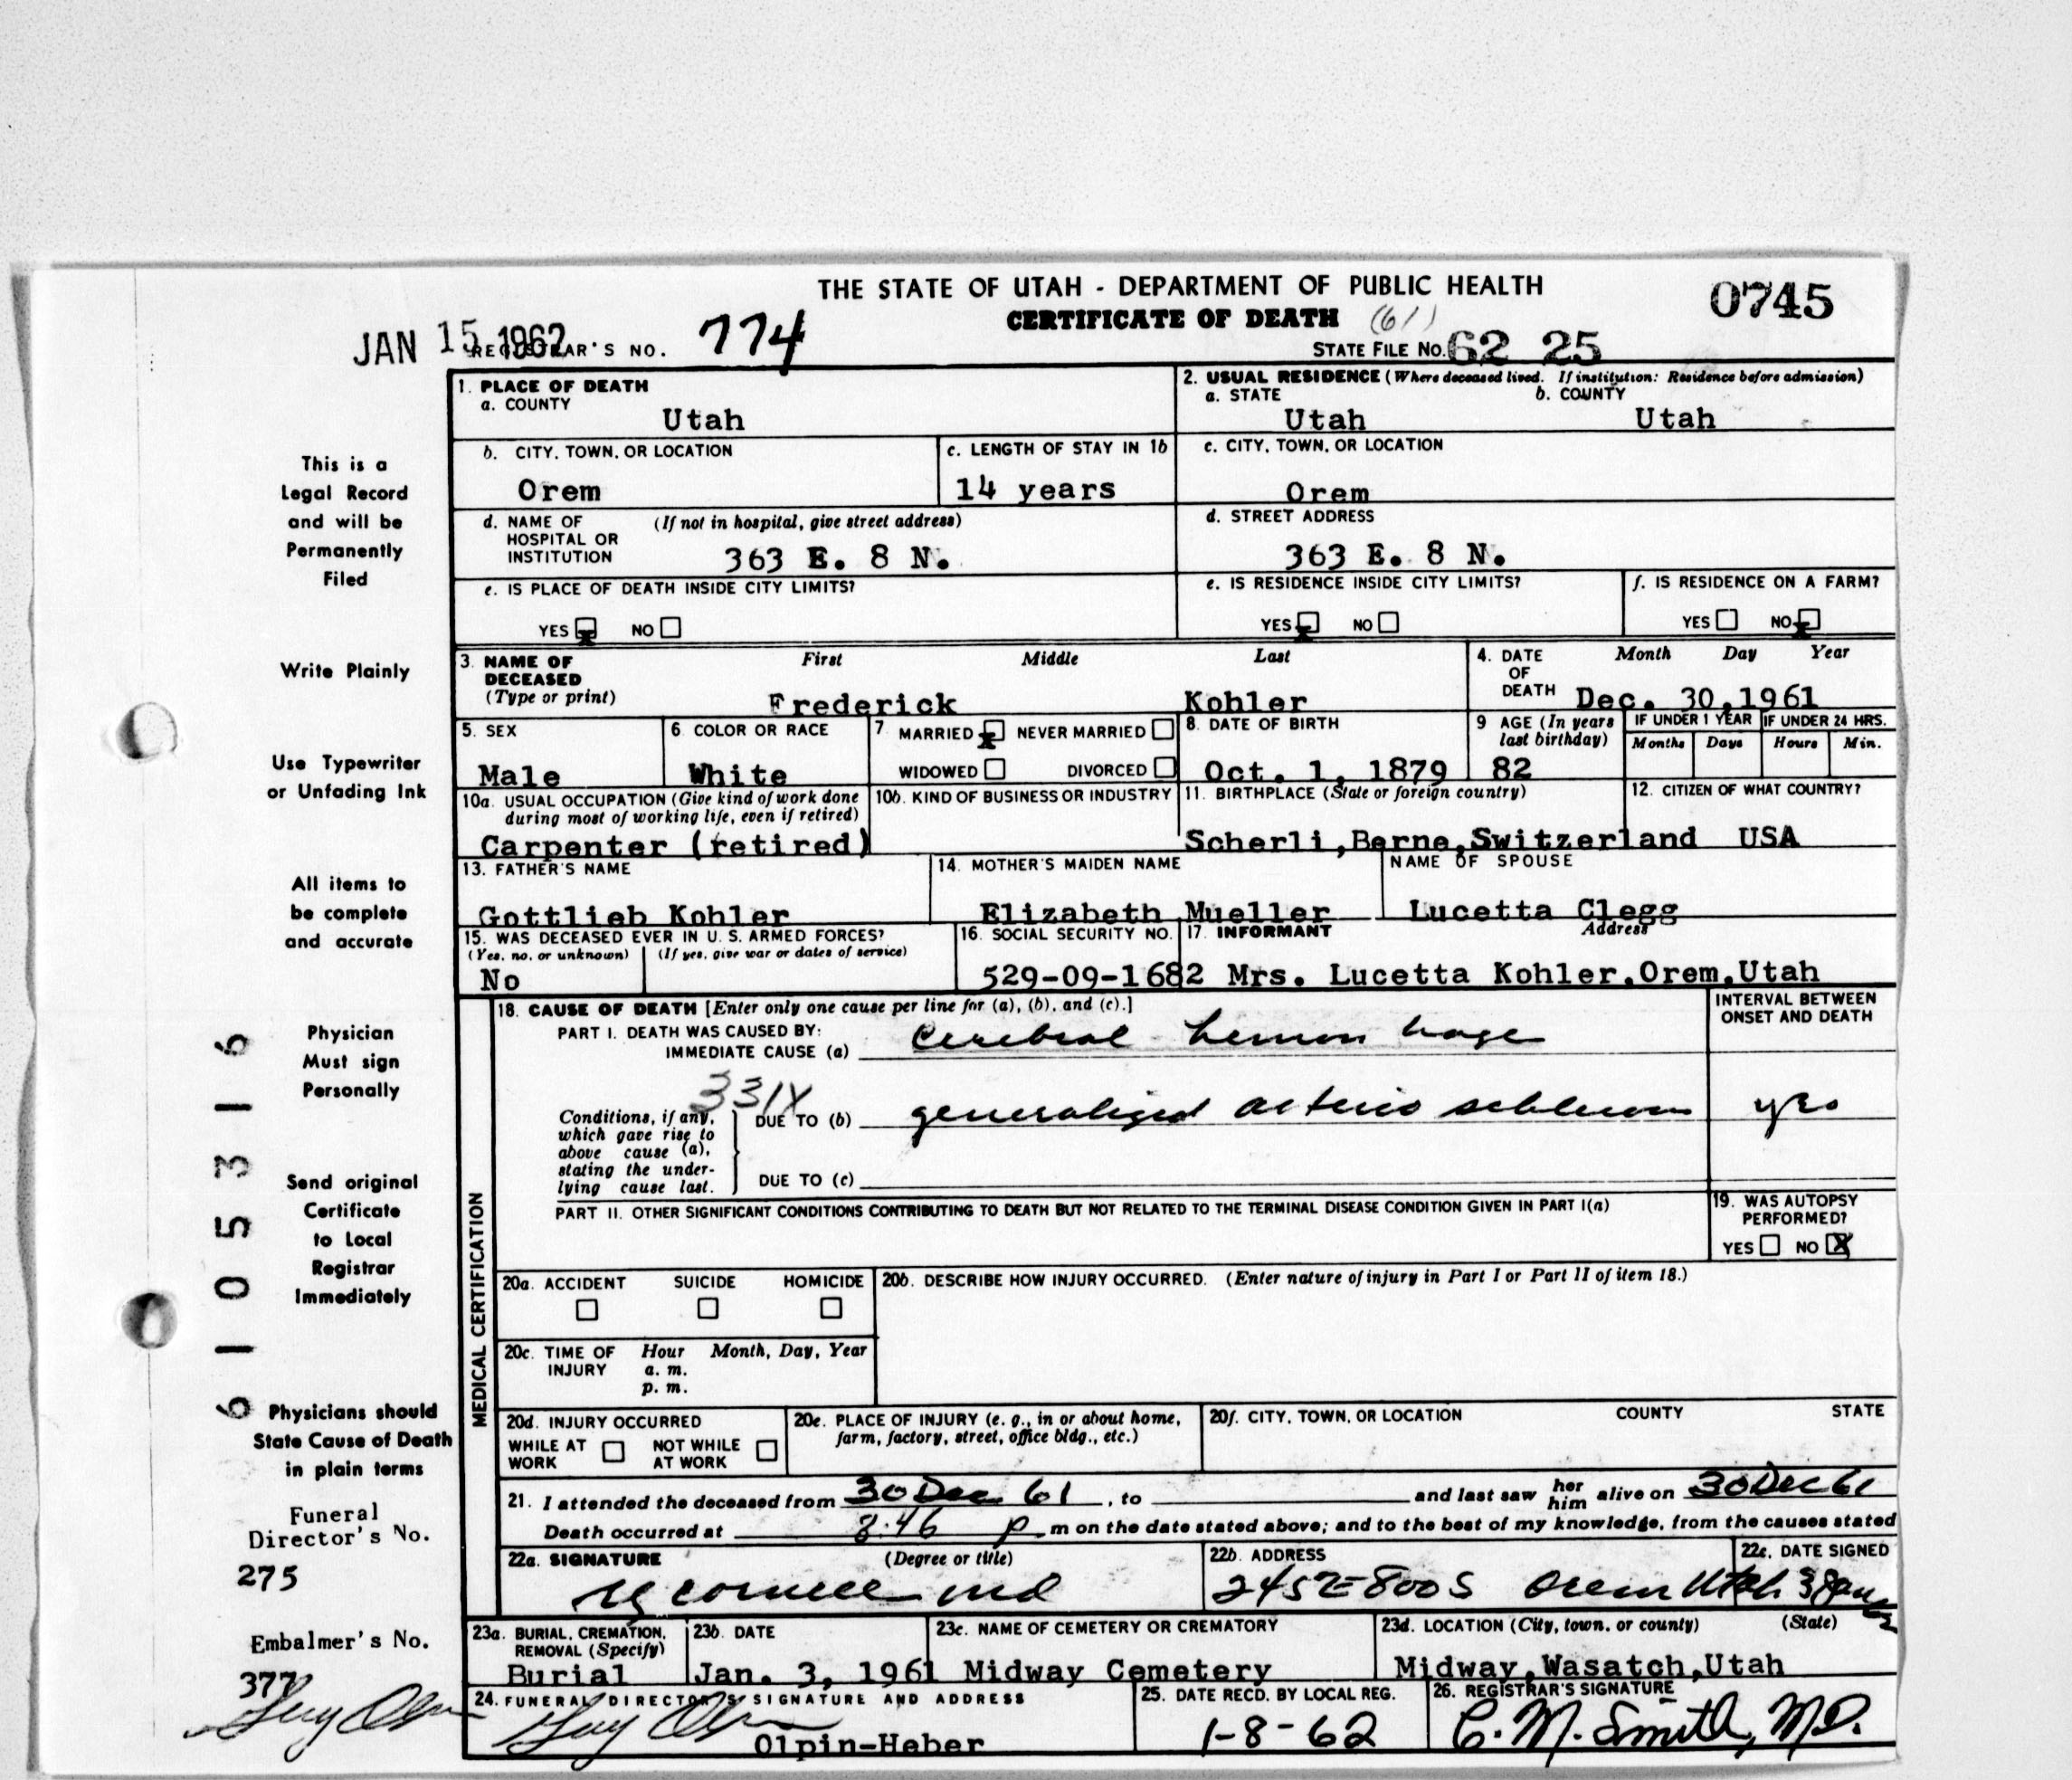 THE STATE OF UTAH - DEPARTMENT OF PUBLIC HEALTH
0745
CERTIFICATE OF DEATH (61)
JAN 15 1962
REGISTRAR'S NO. 774
STATE FILE NO. 62 25
1. PLACE OF DEATH
a. COUNTY
Utah
2. USUAL RESIDENCE (Where deceased lived. If institution: Residence before admission)
a. STATE b. COUNTY
Utah Utah
b. CITY, TOWN, OR LOCATION
Orem
c. LENGTH OF STAY IN 1b
14 years
c. CITY, TOWN, OR LOCATION
Orem
d. NAME OF HOSPITAL OR INSTITUTION (If not in hospital, give street address)
363 E. 8 N.
d. STREET ADDRESS
363 E. 8 N.
e. IS PLACE OF DEATH INSIDE CITY LIMITS?
YES x NO
e. IS RESIDENCE INSIDE CITY LIMITS?
YES x NO
f. IS RESIDENCE ON A FARM?
YES NO x
3. NAME OF DECEASED (Type or print)
First Middle Last
Frederick Kohler
4. DATE OF DEATH
Month Day Year
Dec. 30,1961
5. SEX
Male
6. COLOR OR RACE
White
7 MARRIED x NEVER MARRIED
WIDOWED DIVORCED
8. DATE OF BIRTH
Oct. 1, 1879
9 AGE (In years last birthday)
82
IF UNDER 1 YEAR
Months Days
IF UNDER 24 HRS.
Hours Min.
10a. USUAL OCCUPATION (Give kind of work done during most of working life, even if retired)
Carpenter (retired)
10b. KIND OF BUSINESS OR INDUSTRY
11. BIRTHPLACE (State or foreign country)
Scherli,Berne,Switzerland
12. CITIZEN OF WHAT COUNTRY?
USA
13. FATHER'S NAME
Gottlieb Kohler
14. MOTHER'S MAIDEN NAME
Elizabeth Mueller
NAME OF SPOUSE
Lucetta Clegg
15. WAS DECEASED EVER IN U. S. ARMED FORCES?
(Yes, no, or unknown) (If yes, give war or dates of service)
No
16. SOCIAL SECURITY NO.
529-09-1682
17. INFORMANT Address
Mrs. Lucetta Kohler,Orem,Utah
MEDICAL CERTIFICATION
18. CAUSE OF DEATH [Enter only one cause per line for (a), (b), and (c).]
INTERVAL BETWEEN ONSET AND DEATH
PART I. DEATH WAS CAUSED BY:
IMMEDIATE CAUSE (a) Cerebral hemorrhage
331X
Conditions, if any, which gave rise to above cause (a), stating the underlying cause last.
DUE TO (b) generalized arterio sclerosis yrs
DUE TO (c)
PART II. OTHER SIGNIFICANT CONDITIONS CONTRIBUTING TO DEATH BUT NOT RELATED TO THE TERMINAL DISEASE CONDITION GIVEN IN PART I(a)
19. WAS AUTOPSY PERFORMED?
YES NO X
20a. ACCIDENT SUICIDE HOMICIDE
20b. DESCRIBE HOW INJURY OCCURRED. (Enter nature of injury in Part I or Part II of item 18.)
20c. TIME OF INJURY Hour Month, Day, Year
a. m.
p. m.
20d. INJURY OCCURRED
WHILE AT WORK NOT WHILE AT WORK
20e. PLACE OF INJURY (e. g., in or about home, farm, factory, street, office bldg., etc.)
20f. CITY, TOWN, OR LOCATION COUNTY STATE
21. I attended the deceased from 30 Dec 61, to and last saw her him alive on 30 Dec 61
Death occurred at 8:46 p m on the date stated above; and to the best of my knowledge, from the causes stated
22a. SIGNATURE (Degree or title)
md
22b. ADDRESS
245 E 800 S Orem Utah
22c. DATE SIGNED
3 Jan
23a. BURIAL, CREMATION, REMOVAL (Specify)
Burial
23b. DATE
Jan. 3, 1961
23c. NAME OF CEMETERY OR CREMATORY
Midway Cemetery
23d. LOCATION (City, town, or county) (State)
Midway,Wasatch,Utah
24. FUNERAL DIRECTOR'S SIGNATURE AND ADDRESS
Olpin-Heber
25. DATE RECD. BY LOCAL REG.
1-8-62
26. REGISTRAR'S SIGNATURE
C. M. Smith, M.D.
This is a
Legal Record
and will be
Permanently
Filed
Write Plainly
Use Typewriter
or Unfading Ink
All items to
be complete
and accurate
Physician
Must sign
Personally
Send original
Certificate
to Local
Registrar
Immediately
Physicians should
State Cause of Death
in plain terms
Funeral
Director's No.
275
Embalmer's No.
377
6 1 0 5 3 1 6